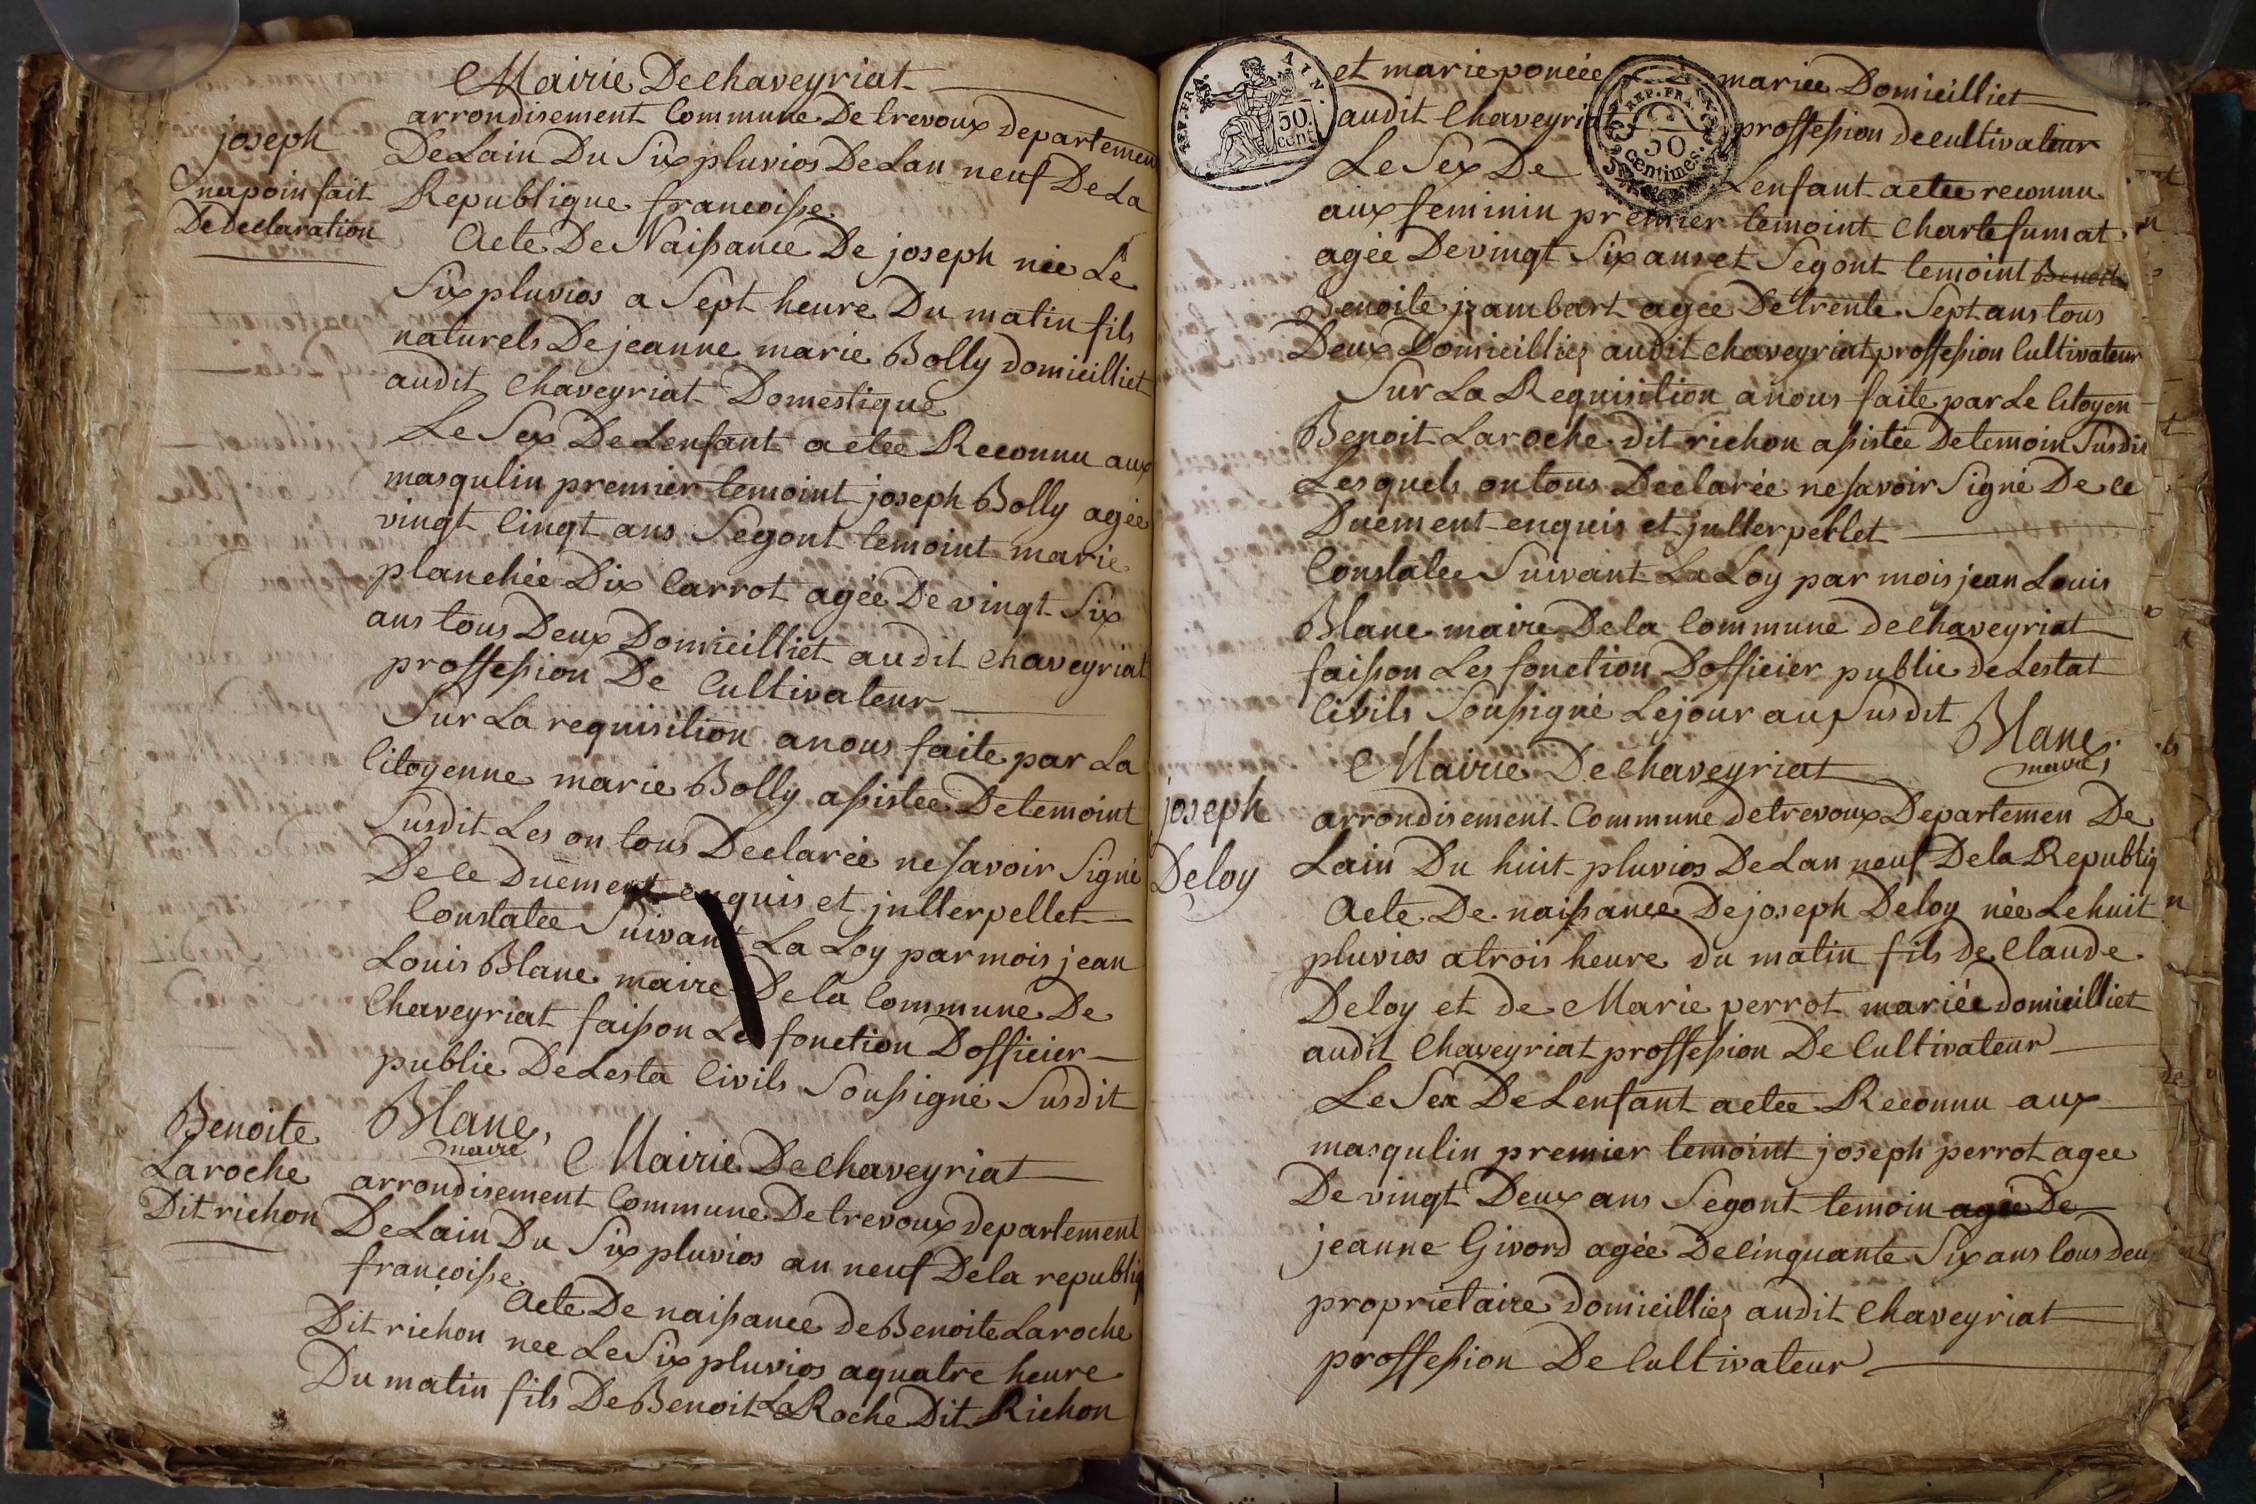 Mairie De chaveyriat
arrondisement Commune De trevoux departemen
De Lain Du Six pluvios De Lan neuf De La
Republique francoisse
joseph
na poin fait
De declaration
Acte De Naissance De joseph née Le
Six pluvios a Sept heure Du matin fils
naturels De jeanne marie Bolly domicilliet
audit Chaveyriat Domestique
Le Sex De Lenfant a etee Reconnu aux
masqulin premier temoint joseph Bolly agée
vingt Cinqt ans Segont temoint marie
planchée Dix Carrot agée De vingt Six
ans tous Deux Domicilliet audit Chaveyriat
proffession De Cultivateur
Sur La requisition a nous faite par La
Citoyenne marie Bolly assistee De temoint
Susdit Les on tous Declarée ne savoir Signé
De ce Duement enquis et jntterpellet
Constatee Suivant La Loy par mois jean
Louis Blanc maire De la Commune De
Chaveyriat faisson Les fonction Dofficier
public De Lesta Civils Soussigné Susdit
Blanc,
maire
Benoite
Laroche
Dit richon
Mairie De chaveyriat
arrondisement Commune De trevoux departement
De Lain Du Six pluvios an neuf De la republiq
françoisse
Acte De naissance de Benoite Laroche
Dit richon nee Le Six pluvios a quatre heure
Du matin fils De Benoit La Roche Dit Richon
REP. FRA. AIN.
50 cent
REP. FRA.
50 Centimes.
et marie poncée mariée Domicilliet
audit Chaveyriat proffession de cultivateur
Le Sex De Lenfant a etee reconnu
aux feminin premier temoint Charle fumat
agée De vingt Six ans et Segont temoint Benoite
Benoite jzambart agée De trente Sept ans tous
Deux Domicilliez audit Chaveyriat proffession Cultivateur
Sur La Requisition a nous faite par Le Citoyen
Benoit Laroche dit richon assistée De temoin Susdit
Les quels on tous Declarée ne savoir Signé De ce
Duement enquis et jntterpellet
Constatee Suivant La Loy par mois jean Louis
Blanc maire De la Commune de Chaveyriat
faisson Les fonction Dofficier public de Lestat
Civils Soussigné Le jour au Susdit
Blanc,
maire,
Mairie De Chaveyriat
joseph
Deloy
arrondisement Commune de trevoux Departemen De
Lain Du huit pluvios De Lan neuf De la Republiq
Acte De naissance De joseph Deloy née Le huit
pluvios a trois heure du matin fils De Claude
Deloy et de Marie perrot mariée domicilliet
audit Chaveyriat proffession De Cultivateur
Le Sex De Lenfant a etee Reconnu aux
masqulin premier temoint joseph perrot agee
De vingt Deux ans Segont temoin agée De
jeanne Givord agée De cinquante Six ans tous deux
proprietaire domicilliez audit Chaveyriat
proffession De Cultivateur